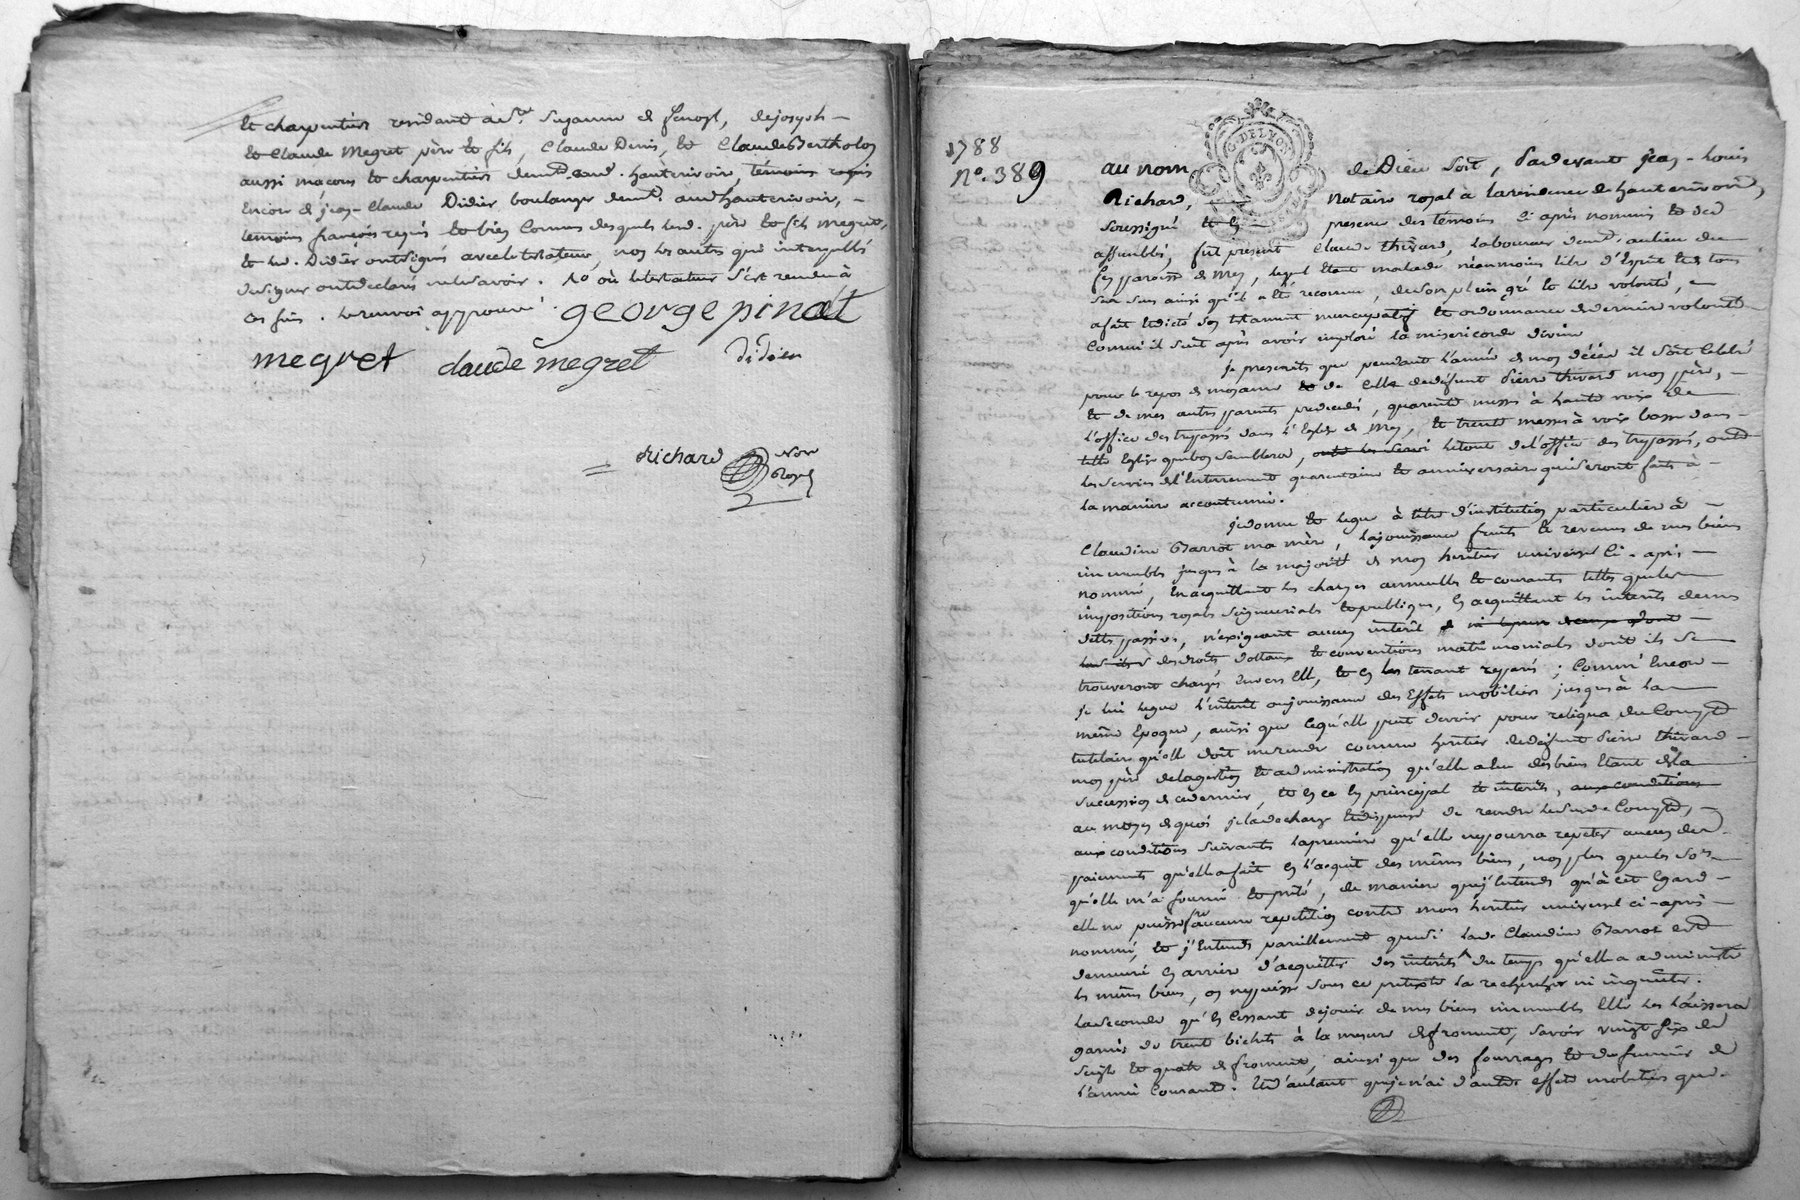 et charpentiers residant à Ste Suzanne de fenoyl, de joseph
et Claude Megret père et fils, Claude Denis, et Claude Bertholon
aussi macons et charpentiers demt. aud. hauterivoire, témoins requis
Encore de jean-Claude Didier boulanger demt. aud hauterivoire,
temoins françois requis et bien Connus desquels led. père et fils megret,
et led. Didier ont signés avec le testateur, non les autres qui interpellés
de signer ont déclaré ne le savoir. où le testateur s'est rendu à
ces fins. le renvoi approuvé. george pinaet
megret claude megret didier
Richard Nore
Royal
1788
No. 389
G. DE LYON
au nom de Dieu soit, Pardevant jean-Louis
Richard, Notaire royal à la residence de hauterivoire,
soussigné et en presence des temoins ci après nommés et de
assemblés, fut present Claude thivard, laboureur demt. au lieu de
paroisse de Mey, lequel étant malade, néanmoins libre d'Esprit et de tous
ses sens ainsi qu'il a été reconnu, de son plein gré et libre volonté,
a fait et dicté son testament nuncupatif et ordonnance de derniere volonté
Comme il suit après avoir imploré la misericorde divine
je prescrits que pendant l'année de mon décès il soit Celebré
pour le repos de mon ame et de Celle de defunt Pierre thivard mon père,
et de mes autres parents predecedés, quarente messes à haute voix de
l'office des trepassés dans l'Eglise de Mey, et trente messes à voix basse dans
telle Eglise que bon semblera, le tout de l'office des trepassés, outre
les services de l'Enterrement quarantaine et anniversaire qui seront faits à
la maniere accoutumée.
je donne et legue à titre d'institution particuliere à
Claudine Barrot ma mère, la jouissance fruits et revenus de mes biens
immeubles jusques à la majorité de mon heritier universel ci-après
nommé, En acquittant les charges annuelles et courantes telles que les
impositions royales seigneuriales et publiques, en acquittant les interets de mes
dettes passives, n'exigeant aucun intérêt
des droits dottaux et conventions matrimoniales dont ils se
trouveront chargés Envers Elle, et en les tenant reparés; Comm' Encore
je lui legue l'interêt ou jouissance des Effets mobiliers jusques à la
même Epoque, ainsi que ce qu'elle peut devoir pour reliqua du Compte
tutelaire qu'elle doit me rendre comme heritier de defunt Pierre thivard
mon père de la gestion et administration qu'elle a eu des biens Etant de la
succession de ce dernier, et en ce en principal et interêts, aux conditions
au moyen de quoi je la decharge et dispense de rendre led. Compte,
aux conditions suivantes la premiere qu'elle ne pourra repeter aucun des
paiements qu'elle a fait en l'acquit des mêmes biens, non plus que les soins
qu'elle m'a fourni et prêté, de maniere que j'Entends qu'à cet Egard
elle ne puisse faire aucune repetition contre mon heritier universel ci-après
nommé, et j'Entends pareillement que si lad. Claudine Barrot est
demeuré en arriere d'acquitter des interêts du temps qu'elle a administré
les mêmes biens, on ne puisse sous ce pretexte la rechercher ni inquieter.
La seconde qu'en Cessant de jouir de mes biens immeubles Elle les laissera
garnis de trente bichets à la mesure de froment, savoir vingt six de
seigle et quatre de froment, ainsi que des fourrages et du fumier de
l'année Courante. Et d'autant que je n'ai d'autre effets mobiliers que